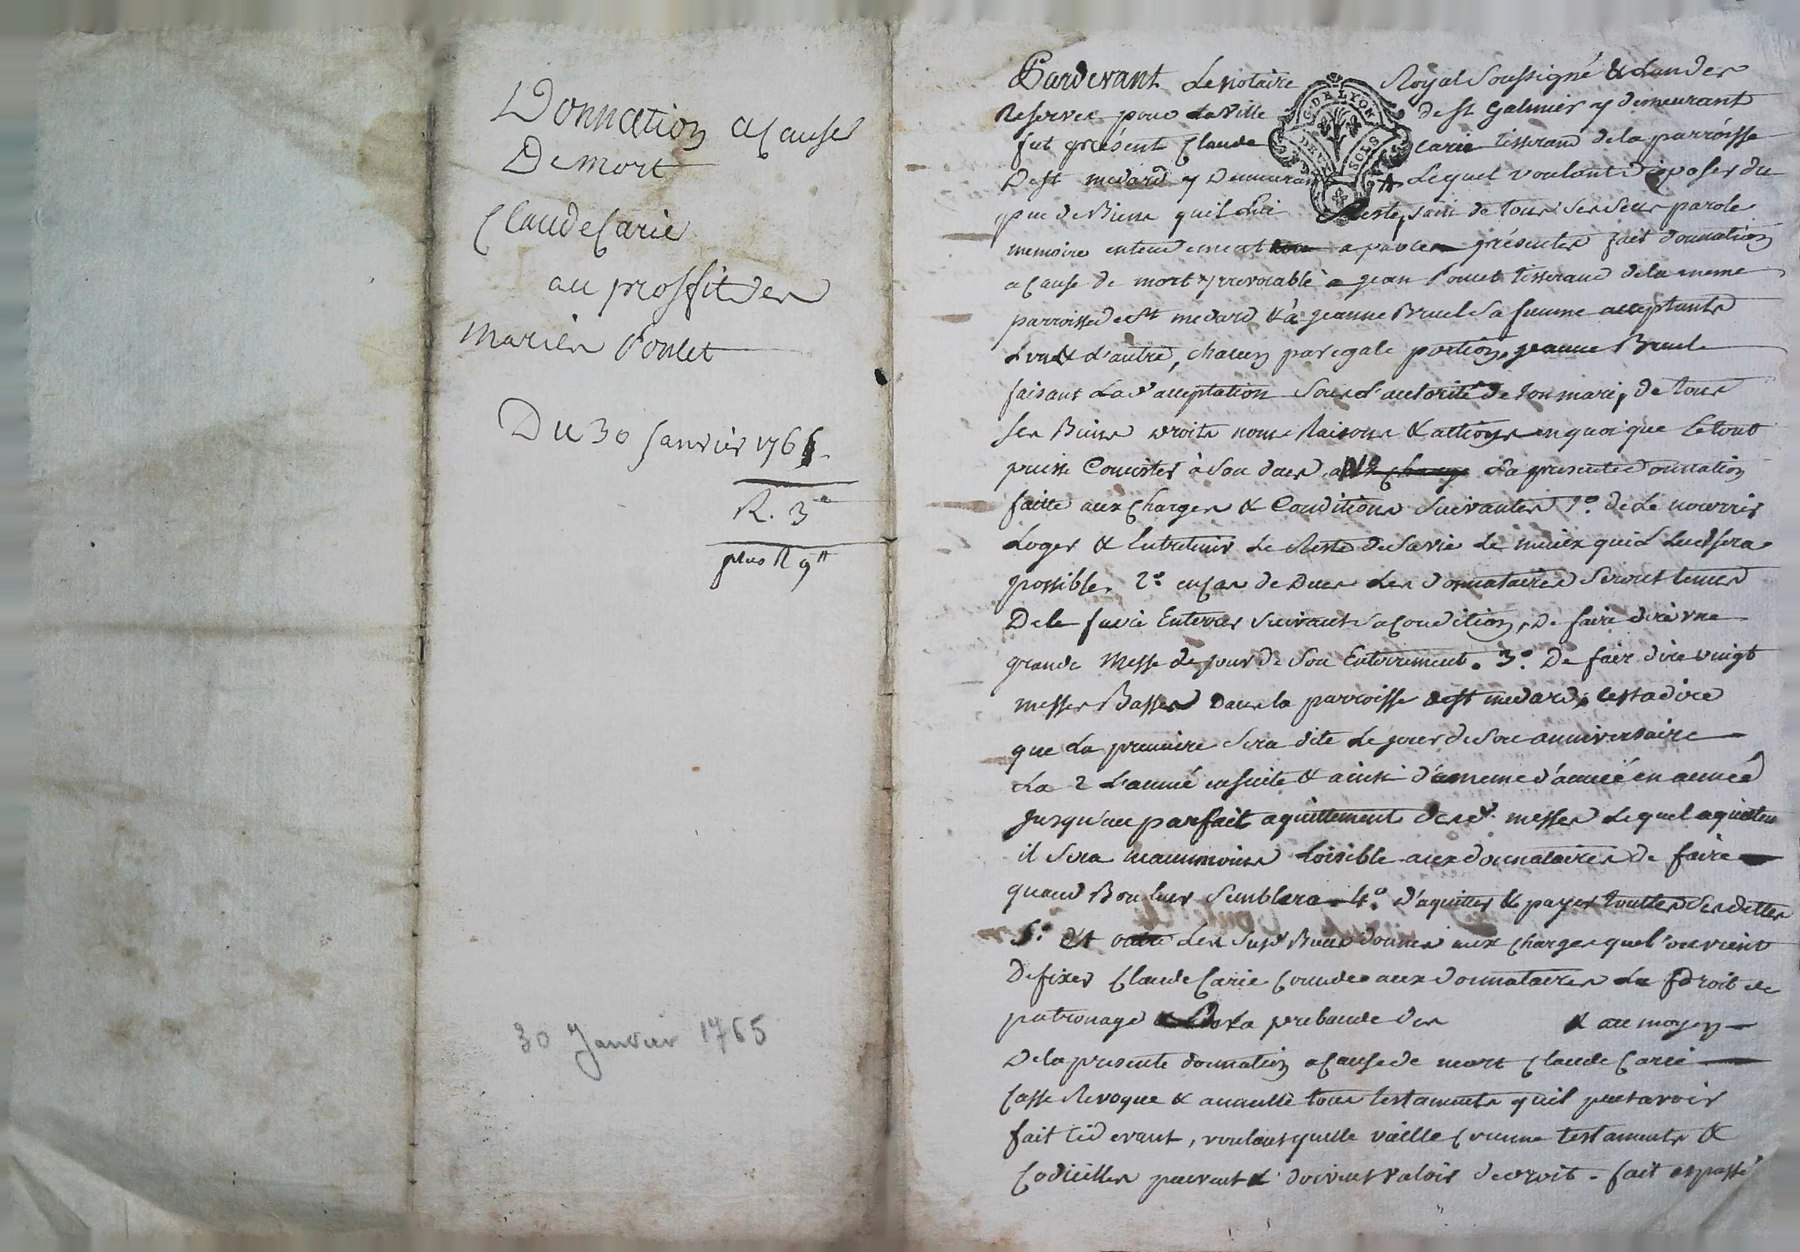 Donnation a Cause
De mort
Claude Carie
au proffit des
mariés Poncet
Du 30 Janvier 1765.
R. 3
plus R 9
30 Janvier 1765
Pardevant Le notaire Royal Soussigné &
Reservé pour La Ville de St Galmier y demeurant
fut présent Claude Carie tisserand de la parroisse
De St medard y Demeurant Lequel voulant disposer du
peu de Biens quil Lui Reste, sain de tous ses sens parole
memoire entendement a par les présentes fait donnation
a Cause de mort & irrevocable a jean Poncet tisserand de la meme
parroisse de St medard & à jeanne Bruel Sa femme acceptants
L'un & L'autre, chacun par egale portion, jeanne Bruel
faisant La d'acceptation Sous L'autorité de son mari, de tous
Ses Biens droits noms Raisons & actions en quoi que Le tout
puisse Consister à Son deces La presente Donnation
faitte aux Charges & Conditions Suivantes 1º. de Le nourrir
Loger & Entretenir Le Reste de Sa vie Le mieux qu'il Leur Sera
possible. 2º. en Cas de Deces Les donnataires Seront tenus
De le faire Enterrer Suivant Sa Condition, De faire dire une
grande Messe Le jour de Son Enterrement. 3º. De faire dire vingt
messes Basses Dans La parroisse de St medard, cest a dire
que La premiere Sera dite Le jour de Son anniversaire
La 2 L'année ensuite & ainsi d'année en année
Jusqu'au parfait aquittement des d. messes Lequel
il Sera neanmoins Loisible aux donnataires de faire
quand Bon Leur Semblera. 4º. d'aquitter & payer touttes Ses dettes
5º. Et outre Les Susd Biens donnés aux Charges quel'on vient
De fixer Claude Carie aux donnataires Le Droit de
patronage La prebande des & au moyen
De La presente donnation a Cause de mort Claude Carie
Casse Revoque & annulle tous testaments qu'il peut avoir
fait Cidevant, voulant quelle vaille Comme testament &
Codicilles peuvent & doivent valoir de droit. fait et passé
G. DE LYON
DEUX SOLS